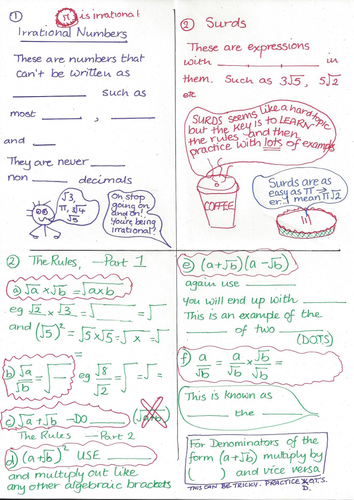 ① π is irrational
Irrational Numbers
These are numbers that
can't be written as
________ such as
most ______ , ______
and ____
They are never ______
non ______ decimals
√3,
π, ∛4
√5
Oh stop
going on
and on!
You're being
irrational!
② Surds
These are expressions
with ____________ in
them. Such as 3√5, 5√2
etc
SURDS seems like a hard topic
but the key is to LEARN
the rules and then
practice with lots of examples
COFFEE
Surds are as
easy as π →
er.. I mean π√2
π
② The Rules, —Part 1
a) √a x √b = √axb
eg √2 x √3 = √____ = √__
and (√5)² = √5 x √5 = √ x = √
b) √a/√b = √__ eg √8/√2 = √__ = √ =
c) √a + √b —DO ____ (√a+b)
The Rules —Part 2
d) (a+√b)² USE ______
and multiply out like
any other algebraic brackets
e) (a+√b)(a-√b)
again use ______
You will end up with ______
This is an example of the
______ of two ______
(DOTS)
f) a/√b = a/√b x √b/√b = ____
This is known as
______ the ______
For Denominators of the
form (a+√b) multiply by
( ) and vice versa
THIS CAN BE TRICKY. PRACTICE